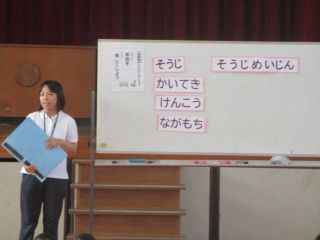 そうじ
そうじめいじん
かいてき
けんこう
ながもち